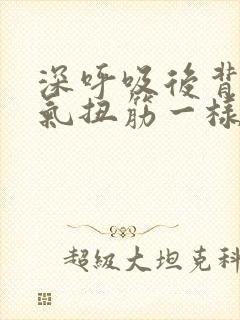 深呼吸後背
氣扭筋一樣
超級大坦克科